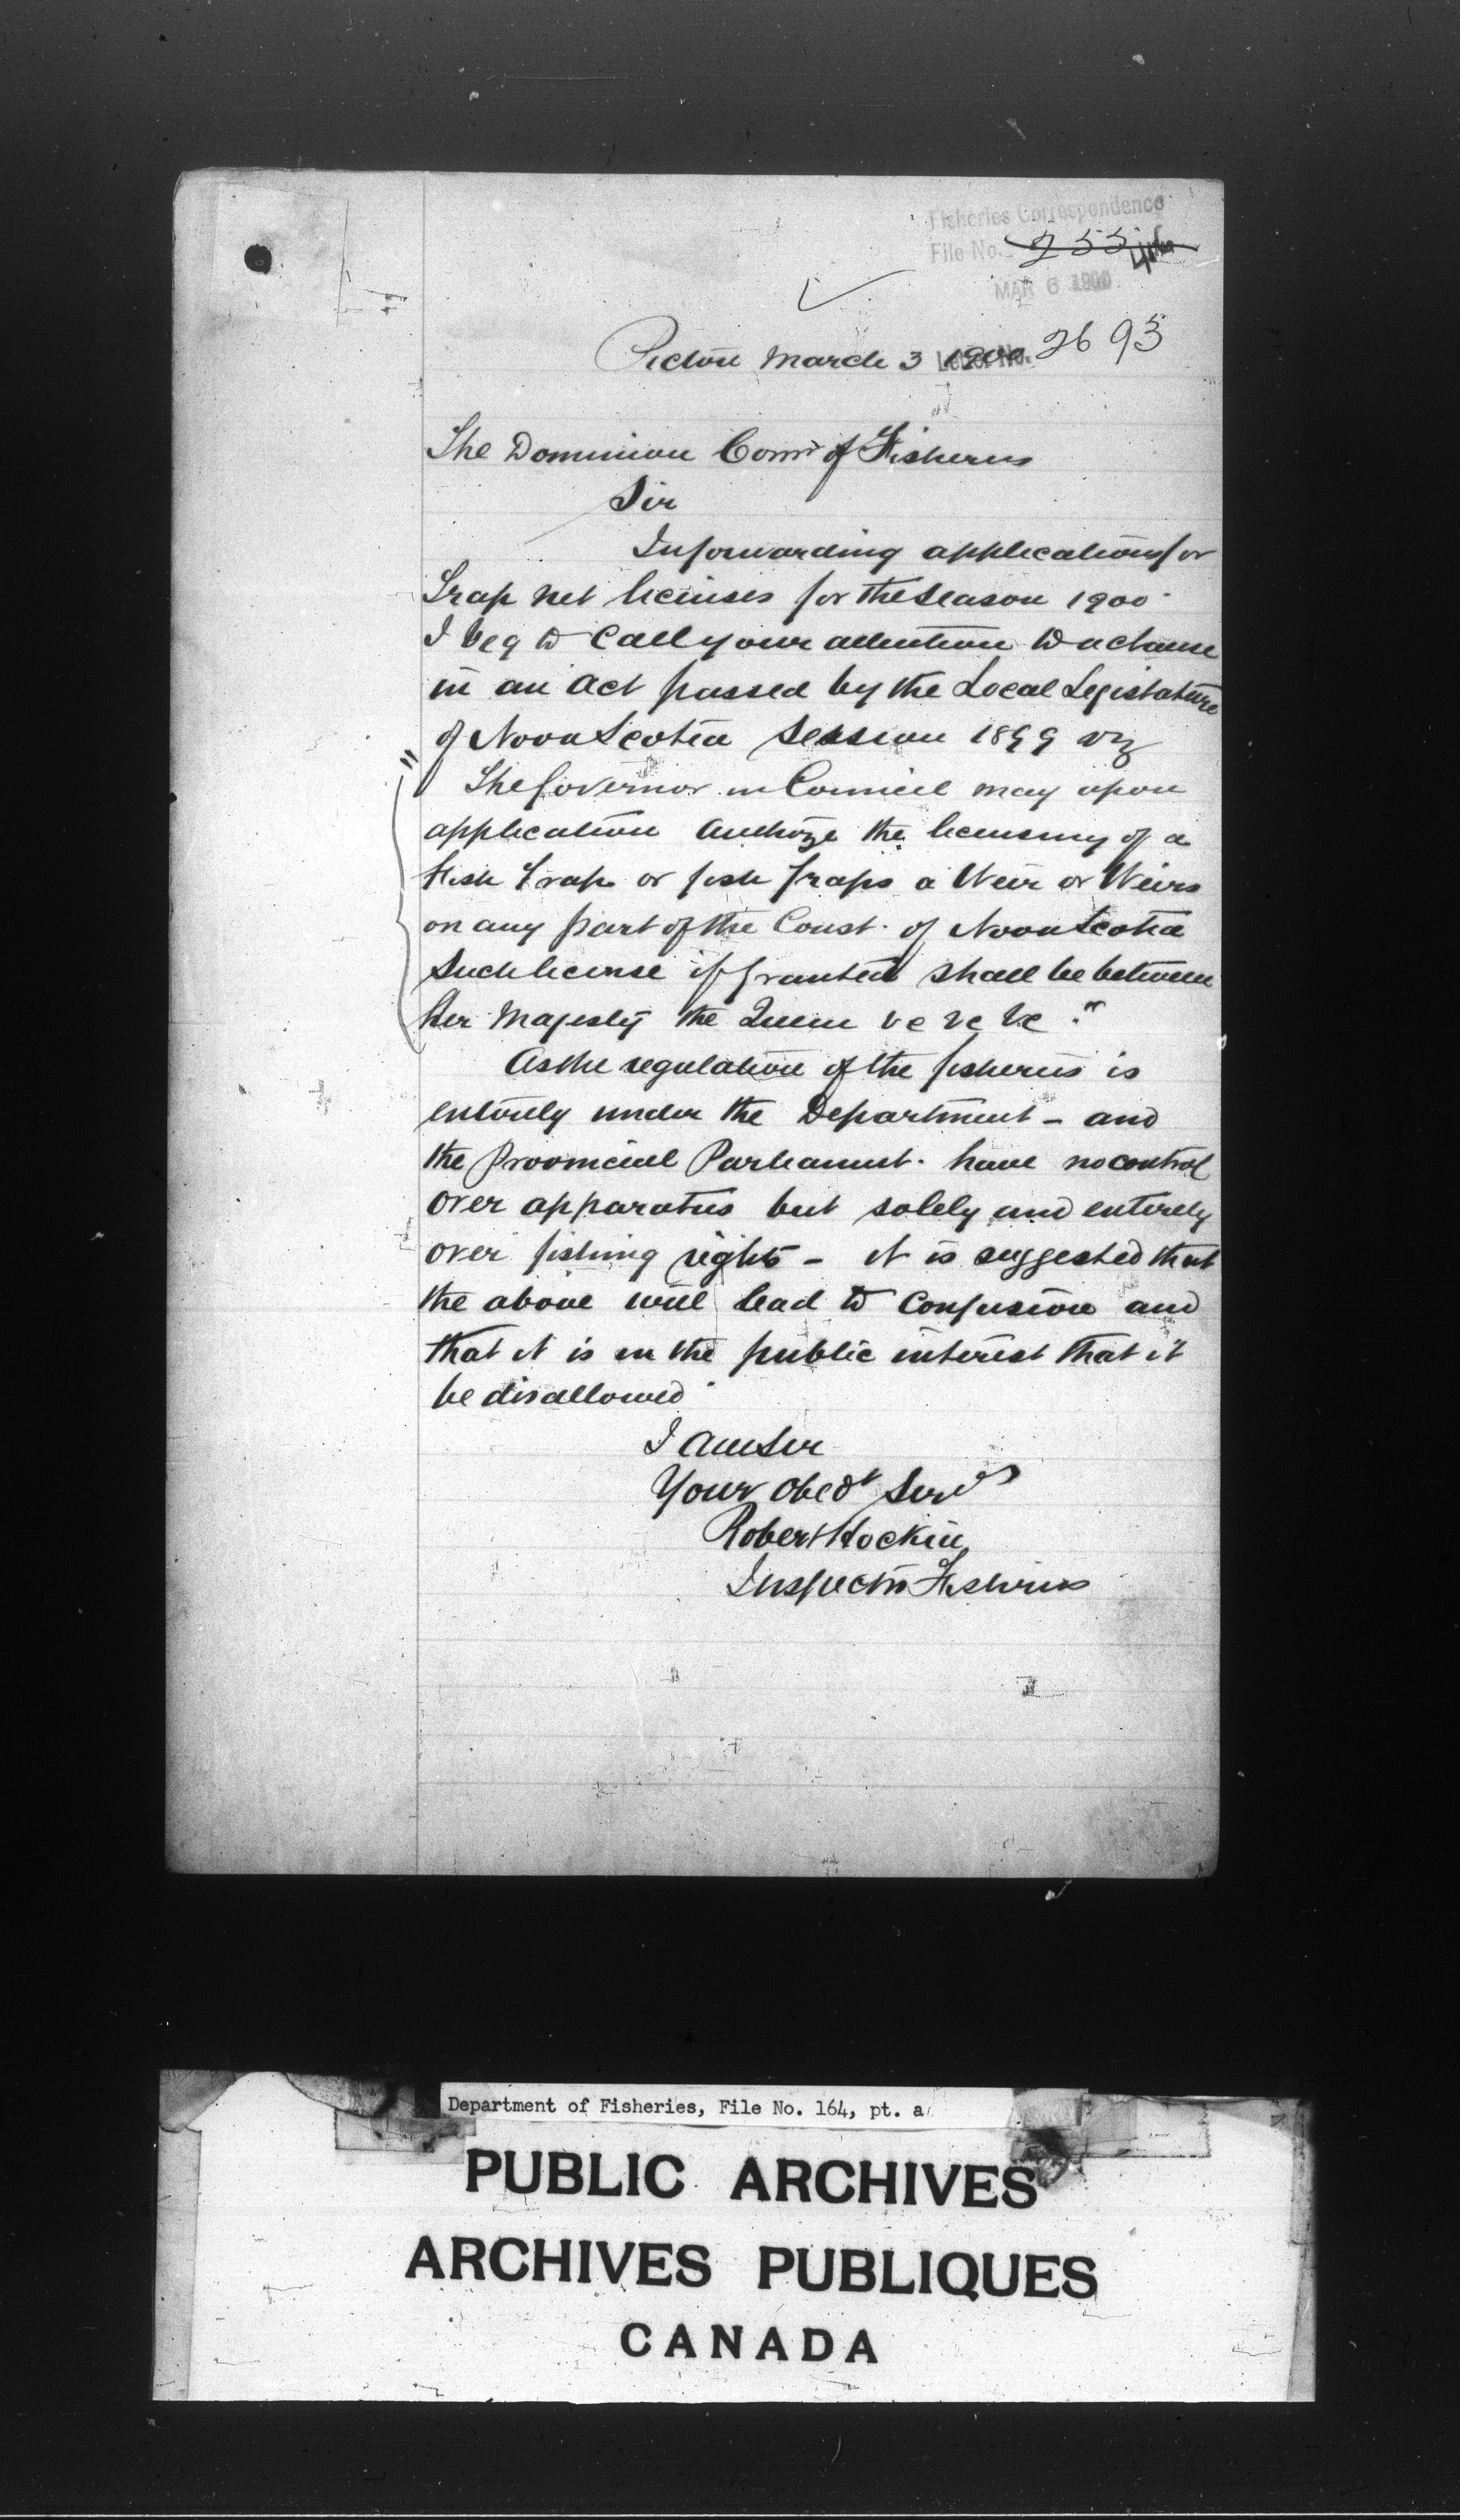 Fisheries Correspondence
File No. 255
MAR 6 1900
Letter No. 2693
Pictou March 3 1900
The Dominion Comr of Fisheries
Sir
In forwarding applications for
Trap net licenses for the season 1900
I beg to call your attention to a clause
in an act passed by the Local Legislature
of Nova Scotia Session 1899 viz
" The Governor in Council may upon
application authorize the licensing of a
fish trap or fish traps a Weir or Weirs
on any part of the Coast of Nova Scotia
such license if granted shall be between
her Majesty the Queen &c &c &c "
As the regulation of the fisheries is
entirely under the Department - and
the Provincial Parliament have no control
over apparatus but solely and entirely
over fishing rights - it is suggested that
the above will lead to confusion and
that it is in the public interest that it
be disallowed
I am Sir
Your obedt Servt
Robert Hockin
Inspector Fisheries
Department of Fisheries, File No. 164, pt. a
PUBLIC ARCHIVES
ARCHIVES PUBLIQUES
CANADA